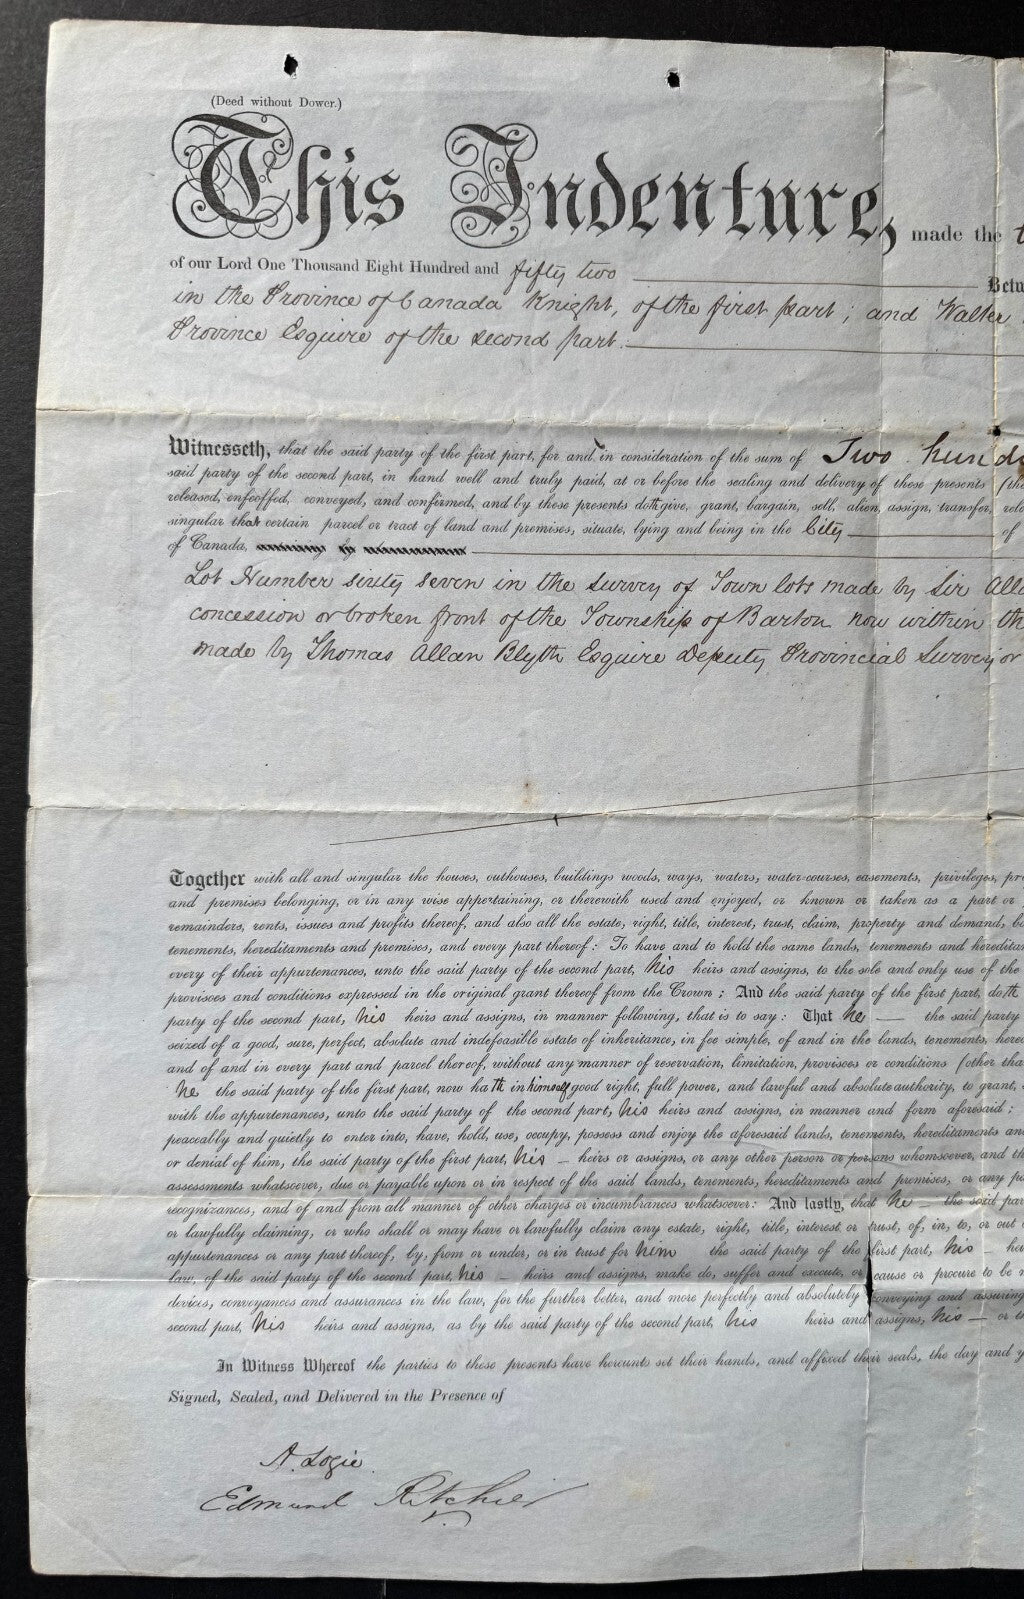 (Deed without Dower.)
This Indenture, made the
of our Lord One Thousand Eight Hundred and fifty two Betw
in the Province of Canada Knight, of the first part; and Walter
Province Esquire of the second part.
Witnesseth, that the said party of the first part, for and in consideration of the sum of Two hund
said party of the second part, in hand well and truly paid, at or before the sealing and delivery of these presents (the
released, enfeoffed, conveyed, and confirmed, and by these presents doth give, grant, bargain, sell, alien, assign, transfer, rel
singular that certain parcel or tract of land and premises, situate, lying and being in the City of
of Canada,
Lot Number sixty seven in the survey of Town lots made by Sir Alla
concession or broken front of the Township of Barton now within th
made by Thomas Allan Blyth Esquire Deputy Provincial Surveyor
Together with all and singular the houses, outhouses, buildings woods, ways, waters, water-courses, easements, privileges, pr
and premises belonging, or in any wise appertaining, or therewith used and enjoyed, or known or taken as a part or
remainders, rents, issues and profits thereof, and also all the estate, right, title, interest, trust, claim, property and demand, b
tenements, hereditaments and premises, and every part thereof: To have and to hold the same lands, tenements and hereditam
every of their appurtenances, unto the said party of the second part, his heirs and assigns, to the sole and only use of the
provisoes and conditions expressed in the original grant thereof from the Crown; And the said party of the first part, doth
party of the second part, his heirs and assigns, in manner following, that is to say: That he the said party
seized of a good, sure, perfect, absolute and indefeasible estate of inheritance, in fee simple, of and in the lands, tenements, hered
and of and in every part and parcel thereof, without any manner of reservation, limitation, provisoes or conditions (other tha
he the said party of the first part, now hath in himself good right, full power, and lawful and absolute authority, to grant,
with the appurtenances, unto the said party of the second part, his heirs and assigns, in manner and form aforesaid:
peaceably and quietly to enter into, have, hold, use, occupy, possess and enjoy the aforesaid lands, tenements, hereditaments an
or denial of him, the said party of the first part, his heirs or assigns, or any other person or persons whomsoever, and th
assessments whatsoever, due or payable upon or in respect of the said lands, tenements, hereditaments and premises, or any p
recognizances, and of and from all manner of other charges or incumbrances whatsoever: And lastly, that he the said par
or lawfully claiming, or who shall or may have or lawfully claim any estate, right, title, interest or trust, of, in, to, or out
appurtenances or any part thereof, by, from or under, or in trust for him the said party of the first part, his he
law, of the said party of the second part, his heirs and assigns, make do, suffer and execute, or cause or procure to be
devices, conveyances and assurances in the law, for the further better, and more perfectly and absolutely conveying and assuring
second part, his heirs and assigns, as by the said party of the second part, his heirs and assigns, his or th
In Witness Whereof the parties to these presents have hereunto set their hands, and affixed their seals, the day and y
Signed, Sealed, and Delivered in the Presence of
A. Logie
Edmund Ritchie